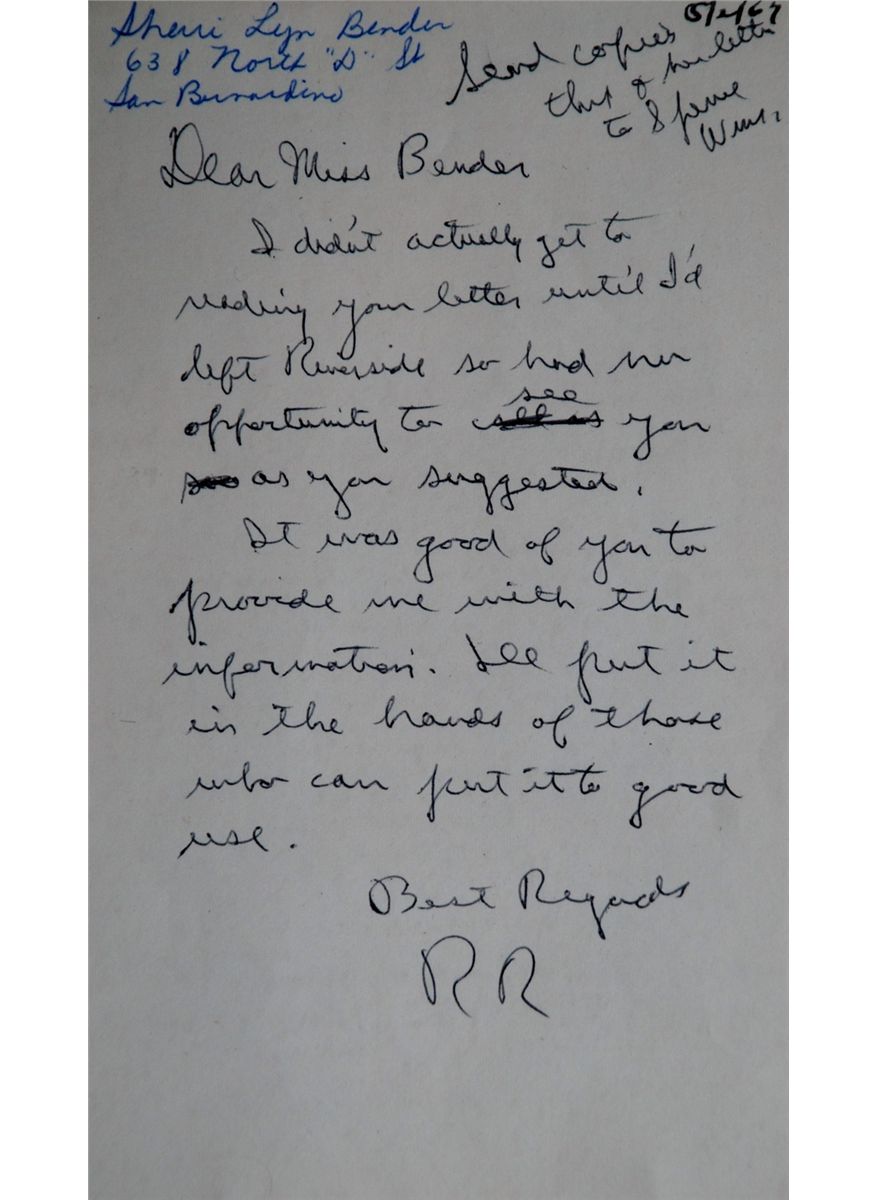 Sherri Lyn Bender
638 North "D" St
San Bernardino
Send copies
this & her letter
to Spence
Wms.
Dear Miss Bender
I didn't actually get to
reading your letter until I'd
left Riverside so had no
opportunity to see you
as you suggested.
It was good of you to
provide me with the
information. I'll put it
in the hands of those
who can put it to good
use.
Best Regards
RR